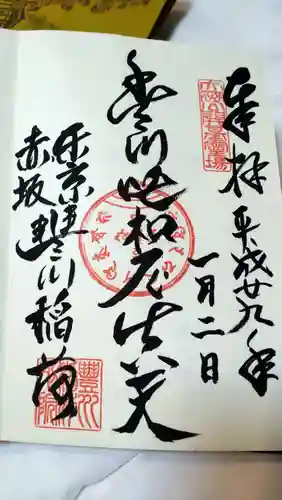 奉拝
平成廿九年
一月二日
豊川吒枳尼真天
東京
赤坂
豊川稲荷